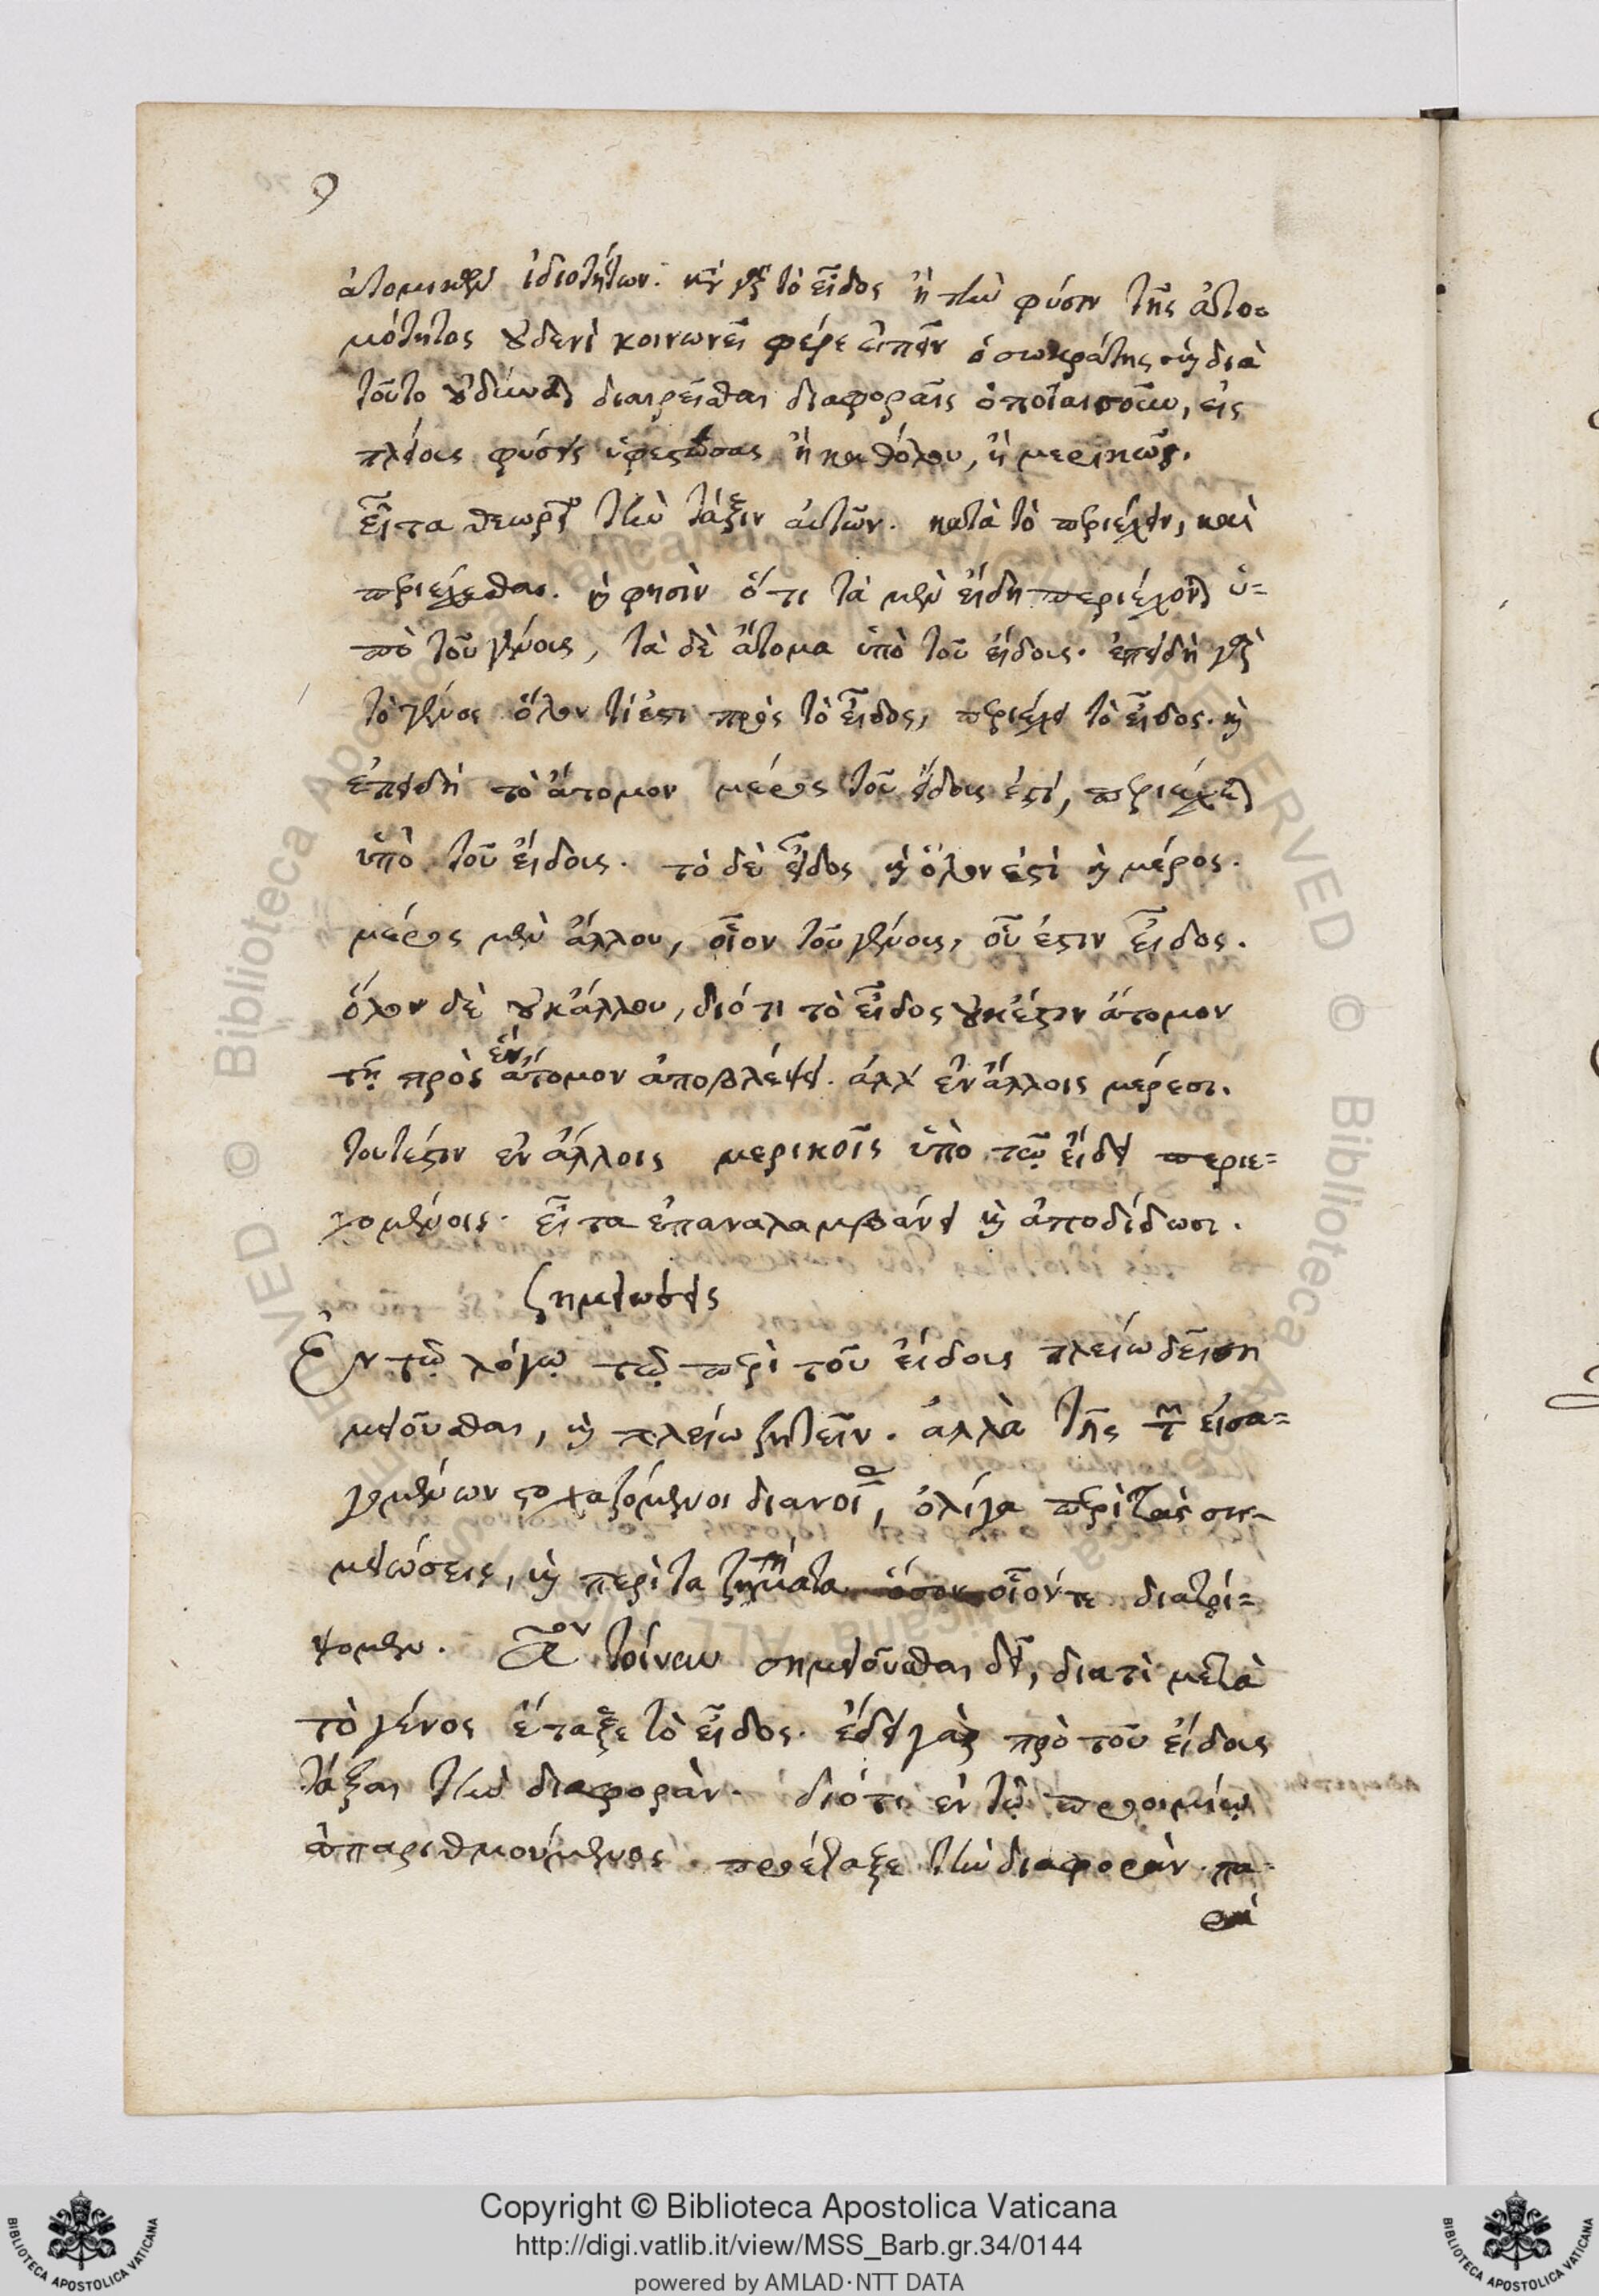 ἀτομικῶν ἰδιοτήτων. κατὰ γὰρ τὸ εἶδος ἢ τὴν φύσιν τῆς ἀτο=
μότητος οὐδενὶ κοινωνεῖ φέρε εἰπεῖν ὁ σωκράτης καὶ διὰ
τοῦτο οὐδύναται διαιρεῖσθαι διαφοραῖς ὁποίαις οὖν, εἰς
πλείους φύσεις ὑφεστώσας ἢ καθόλου, ἢ μερικῶς.
εἶτα θεωρεῖ τὴν τάξιν αὐτῶν. κατὰ τὸ περιέχειν, καὶ
περιέχεσθαι. καὶ φησὶν ὅτι τὰ μὲν εἴδη περιέχονται ὑ=
πὸ τοῦ γένους, τὰ δὲ ἄτομα ὑπὸ τοῦ εἴδους. ἐπειδὴ γὰρ
τὸ γένος ὅλον τί ἐστι πρὸς τὸ εἶδος, περιέχει τὸ εἶδος. καὶ
ἐπειδὴ τὸ ἄτομον μέρος τοῦ εἴδους ἐστί, περιέχεται
ὑπὸ τοῦ εἴδους. τὸ δὲ εἶδος καὶ ὅλον ἐστὶ καὶ μέρος.
μέρος μὲν ἄλλου, οἷον τοῦ γένους, οὗ ἐστιν εἶδος.
ὅλον δὲ οὐκ ἄλλου, διότι τὸ εἶδος οὐκ ἔστιν ἄτομον
τῇ πρὸς ἓν ἄτομον ἀποβλέψει. ἀλλ' ἐν ἄλλοις μέρεσι.
τουτέστιν ἐν ἄλλοις μερικοῖς ὑπὸ τῷ εἴδει περιε=
χομένοις. εἶτα ἐπαναλαμβάνει καὶ ἀποδίδωσι.
Σημειώσεις
Ἐν τῷ λόγῳ τῷ περὶ τοῦ εἴδους πλείω δεῖ ση
μειοῦσθαι, καὶ πλείω ζητεῖν. ἀλλὰ τῆς τῶν εἰσα=
γομένων στοχαζόμενοι διανοίας, ὀλίγα περὶ τὰς ση-
μειώσεις, καὶ περὶ τὰ ζητήματα οἷόν τε διατρί=
ψομεν. αον τοίνυν σημειοῦσθαι δεῖ, διατὶ μετὰ
τὸ γένος ἔταξε τὸ εἶδος. ἔδει γὰρ πρὸ τοῦ εἴδους
τάξαι τὴν διαφορὰν. διότι ἐν τῷ προοιμίῳ
ἀπαριθμούμενος. προέταξε τὴν διαφορὰν. πα=
Copyright © Biblioteca Apostolica Vaticana
http://digi.vatlib.it/view/MSS_Barb.gr.34/0144
powered by AMLAD·NTT DATA
BIBLIOTECA APOSTOLICA VATICANA
BIBLIOTECA APOSTOLICA VATICANA